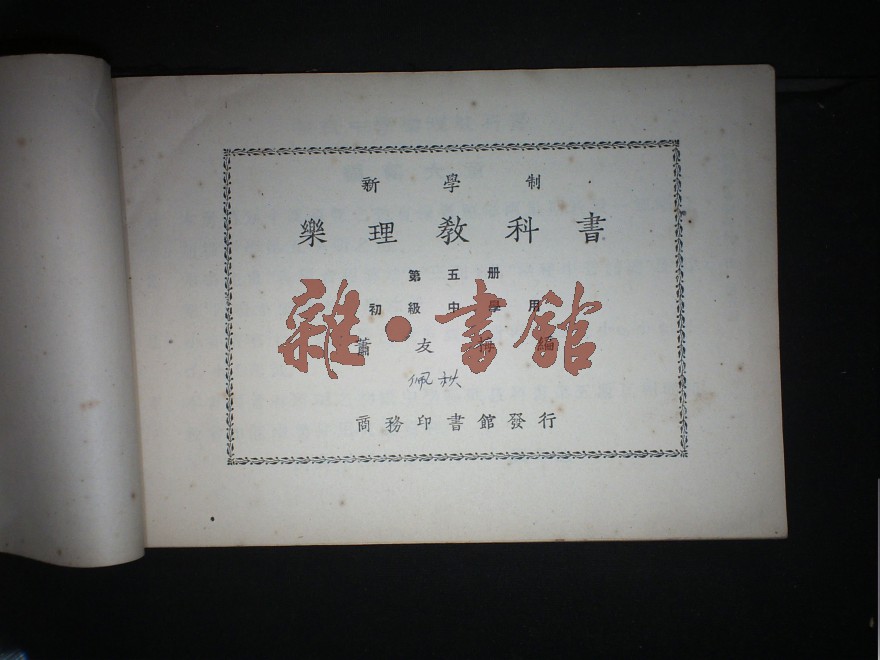 新學制
樂理教科書
第五册
初級中學用
蕭友梅編
雜·書館
佩秋
商務印書館發行